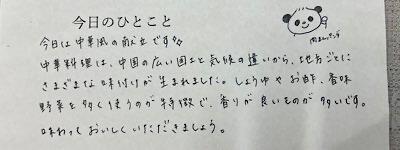 今日のひとこと
今日は中華風の献立です☆
中華料理は、中国の広い国土と気候の違いから、地方ごとに
さまざまな味付けが生まれました。しょうゆやお酢、香味
野菜を多く使うのが特徴で、香りが良いものが多いです。
味わっておいしくいただきましょう。
肉まんパンダ